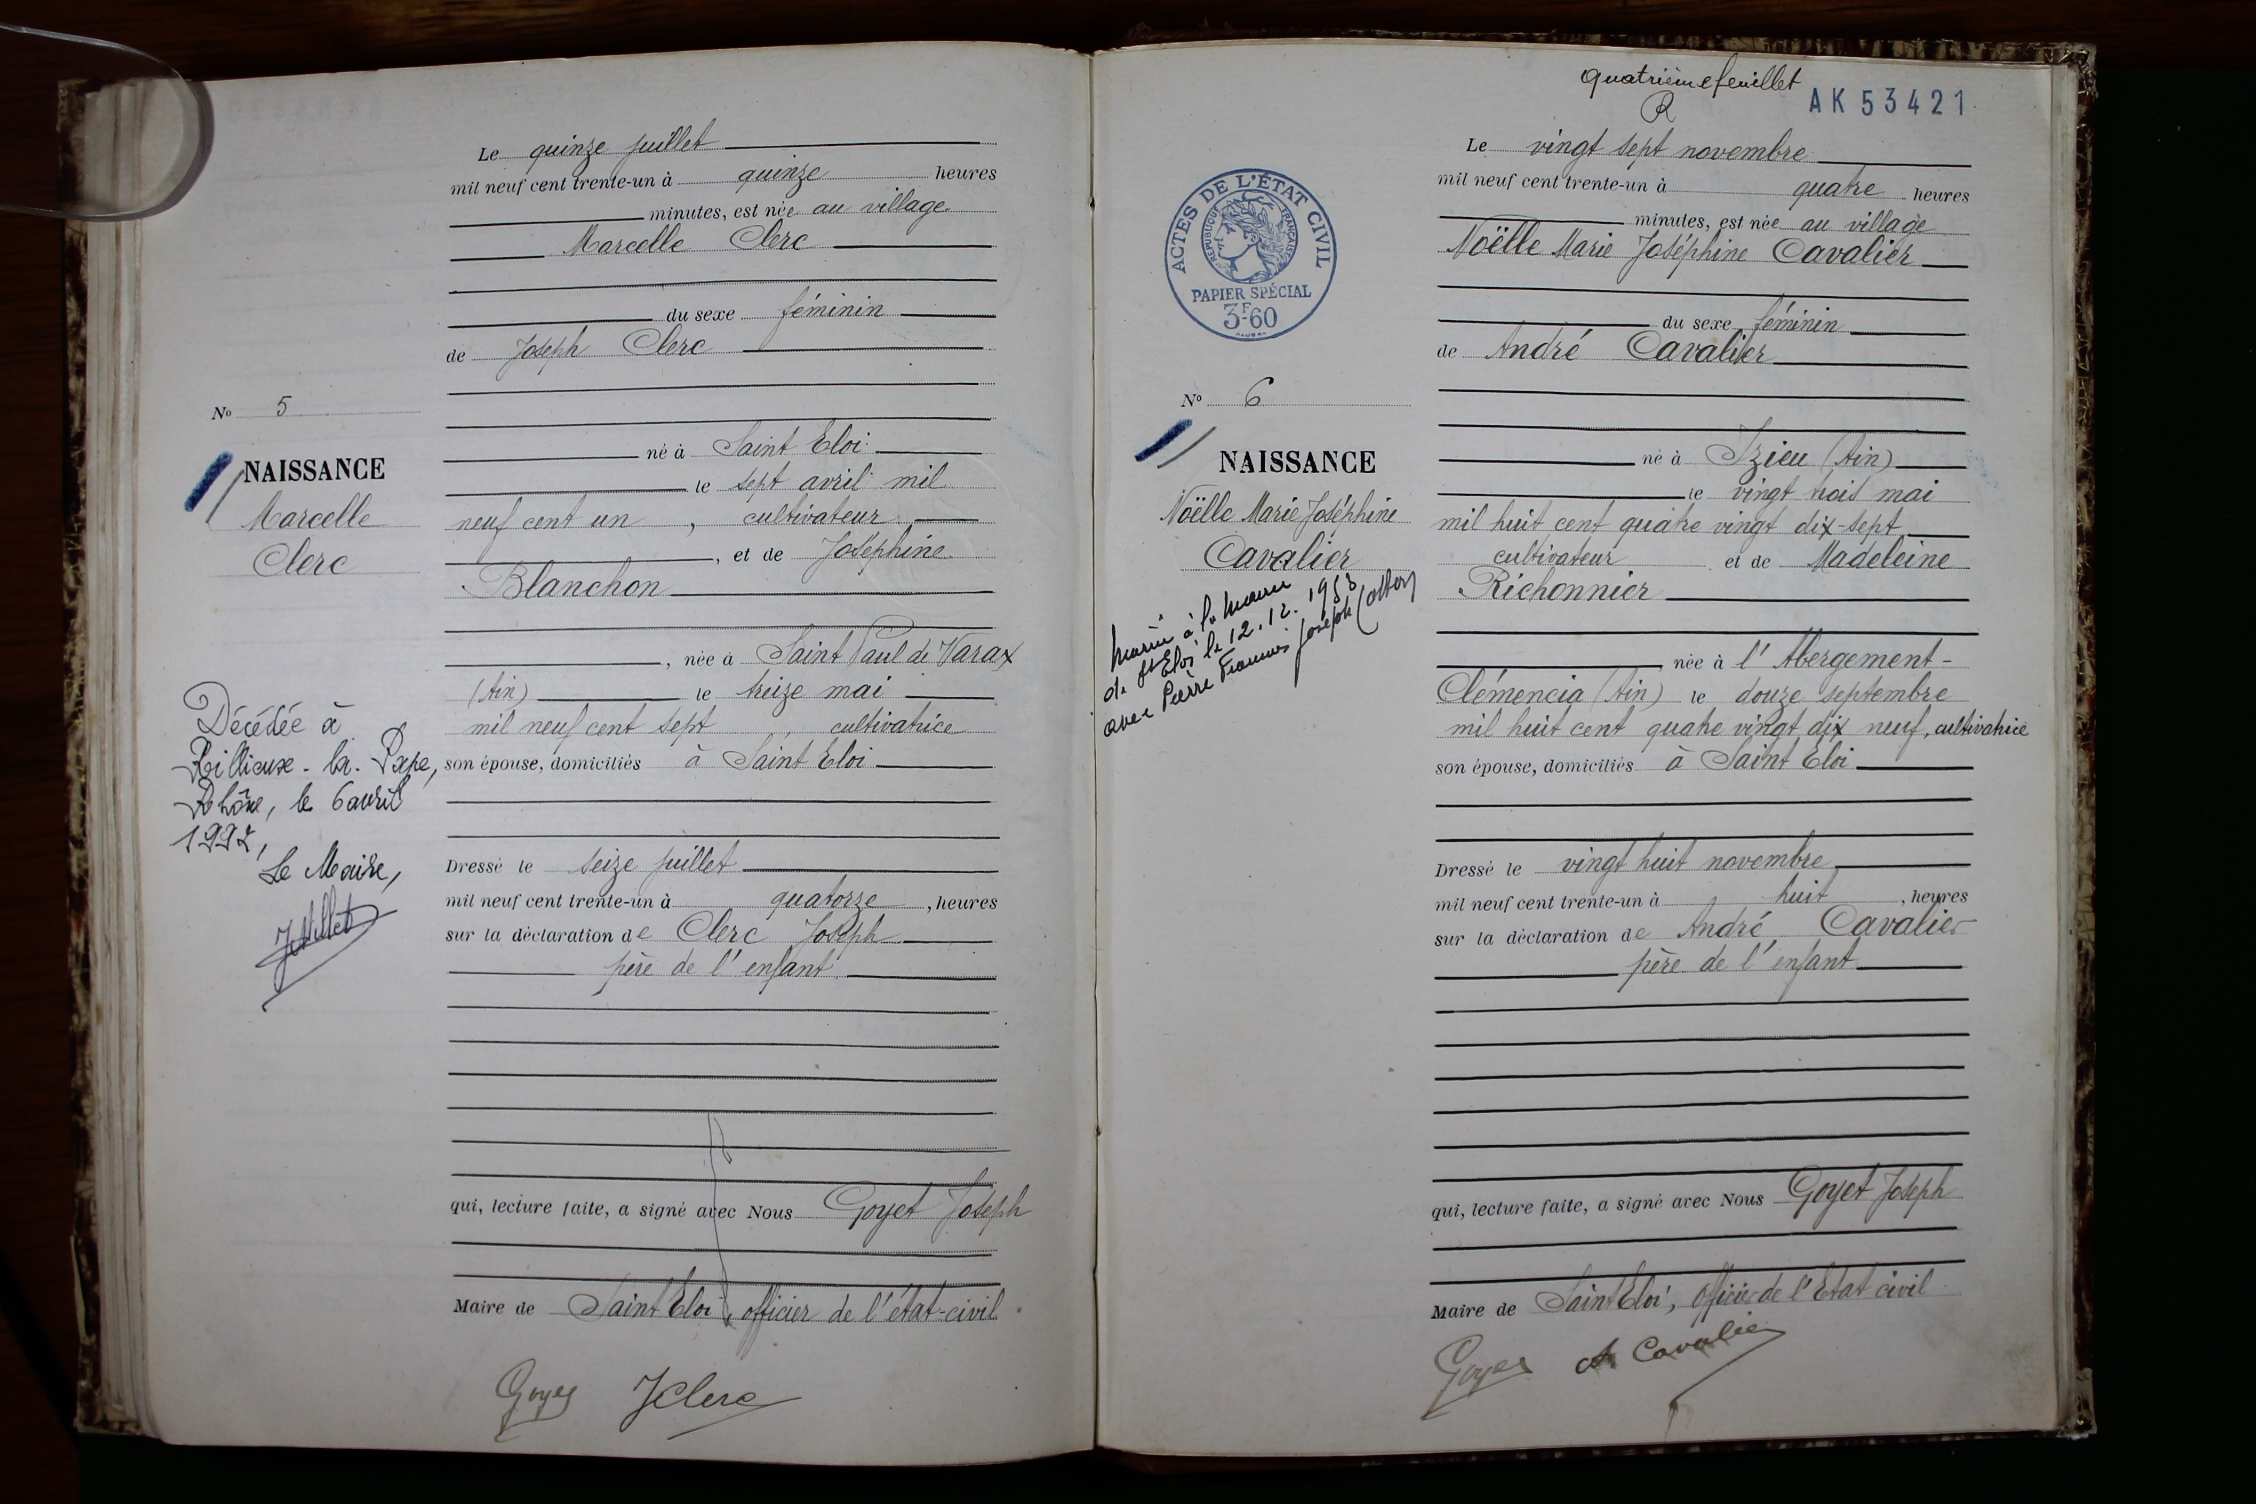 Le quinze juillet
mil neuf cent trente-un à quinze heures
minutes, est née au village
Marcelle Clerc
du sexe féminin
de Joseph Clerc
N° 5
né à Saint Eloi
NAISSANCE
le sept avril mil
Marcelle
neuf cent un, cultivateur
Clerc
, et de Joséphine
Blanchon
, née à Saint Paul de Varax
(Ain) le treize mai
mil neuf cent sept cultivatrice
son épouse, domiciliés à Saint Eloi
Décédée à
Rillieux-la-Pape,
Rhône, le 6 avril
1992,
Le Maire,
Dressé le seize juillet
mil neuf cent trente-un à quatorze, heures
sur la déclaration de Clerc Joseph
père de l'enfant
qui, lecture faite, a signé avec Nous Goyet Joseph
Maire de Saint Eloi, officier de l'état-civil
Goyet JClerc
quatrième feuillet
R
AK 53421
ACTES DE L'ÉTAT CIVIL
RÉPUBLIQUE FRANÇAISE
PAPIER SPÉCIAL
3F60
Le vingt sept novembre
mil neuf cent trente-un à quatre heures
minutes, est née au village
Noëlle Marie Joséphine Cavalier
du sexe féminin
de André Cavalier
N° 6
né à Izieu (Ain)
NAISSANCE
le vingt trois mai
Noëlle Marie Joséphine
mil huit cent quatre vingt dix-sept
Cavalier
cultivateur et de Madeleine
Richonnier
née à l'Abergement-
Clémencia (Ain) le douze septembre
mil huit cent quatre vingt dix neuf, cultivatrice
son épouse, domiciliés à Saint Eloi
Mariée à la Mairie
de St Eloi le 12.12.1953
avec Pierre Francois Joseph
Dressé le vingt huit novembre
mil neuf cent trente-un à huit, heures
sur la déclaration de André Cavalier
père de l'enfant
qui, lecture faite, a signé avec Nous Goyet Joseph
Maire de Saint Eloi, officier de l'Etat civil
Goyet A Cavalier